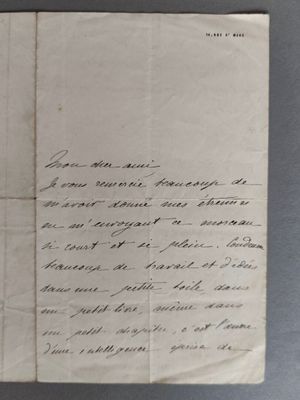 14, RUE ST MARC
Mon cher ami
Je vous remercie beaucoup de
m'avoir donné mes étrennes
en m'envoyant ce morceau
si court et si plein. Condenser
beaucoup de travail et d'idées
dans une petite toile dans
un petit livre, même dans
un petit chapitre, c'est l'œuvre
d'une intelligence éprise de